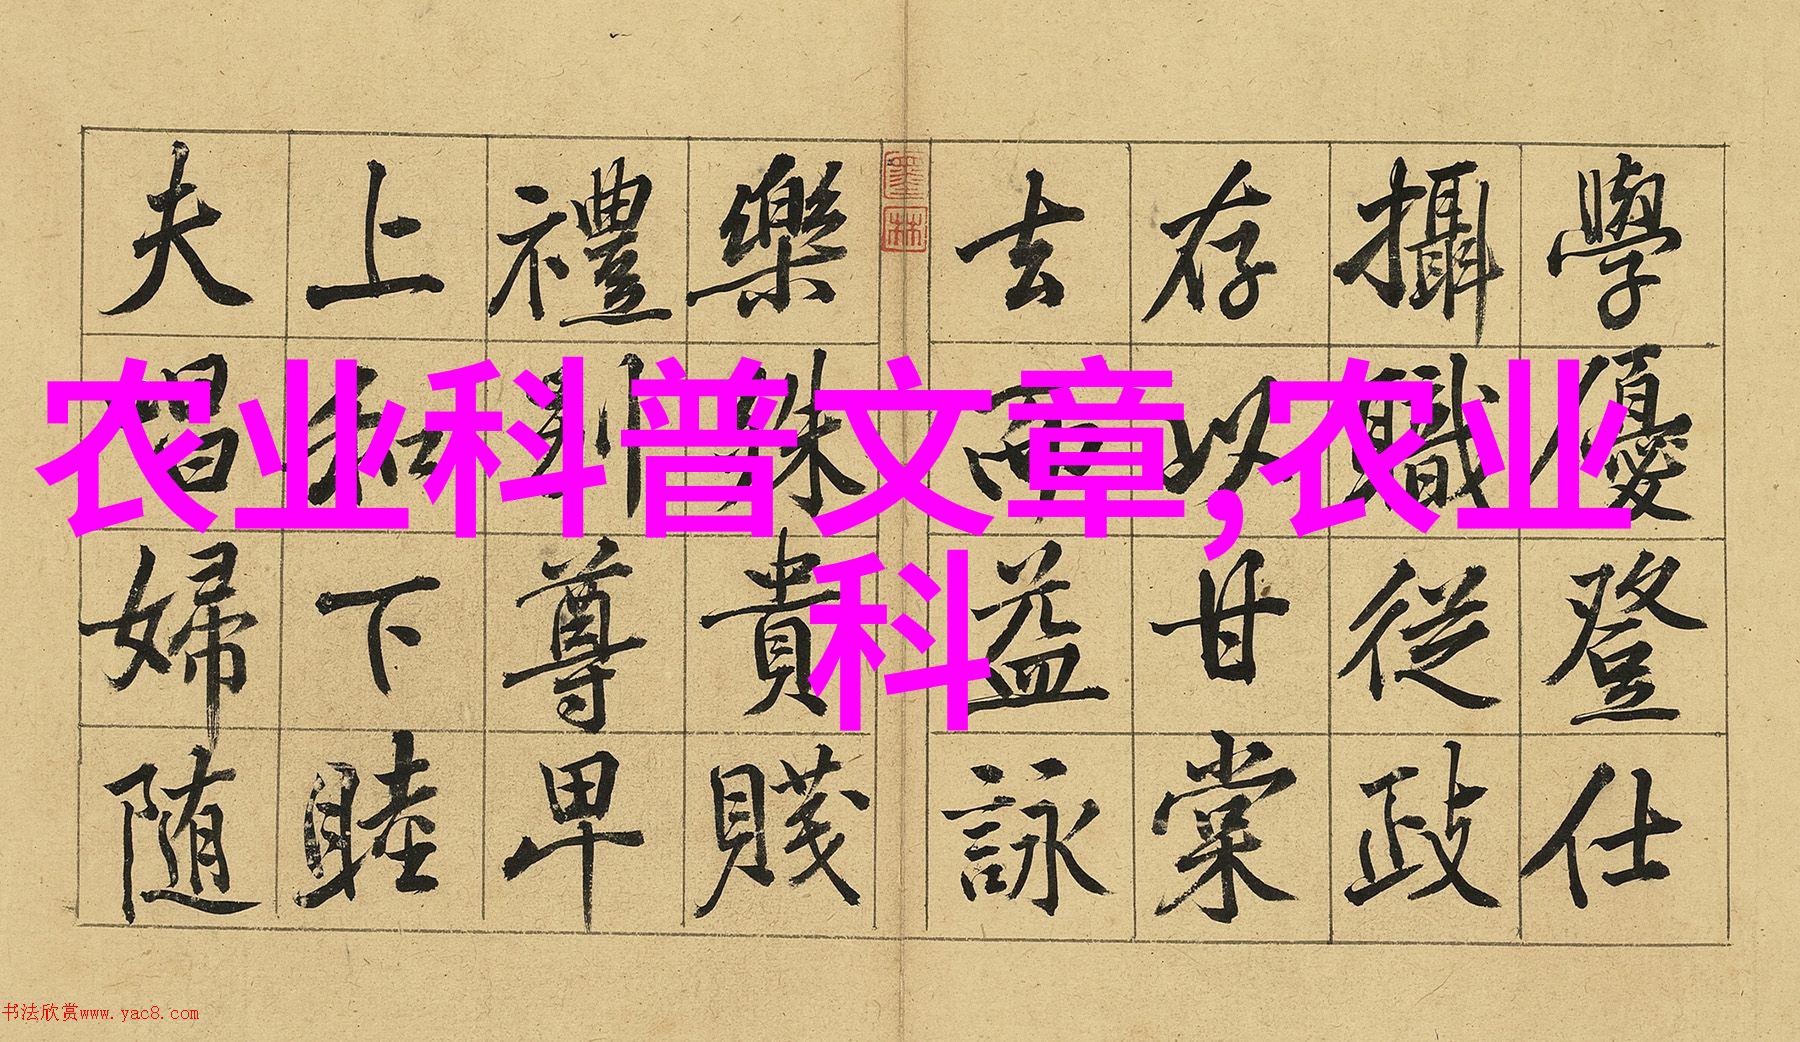 學優登仕
攝職從政
存以甘棠
去而益詠
樂殊貴賤
禮別尊卑
上和下睦
夫唱婦随
墨林
农业科普文章,农业
科
书法欣赏www.yac8.com